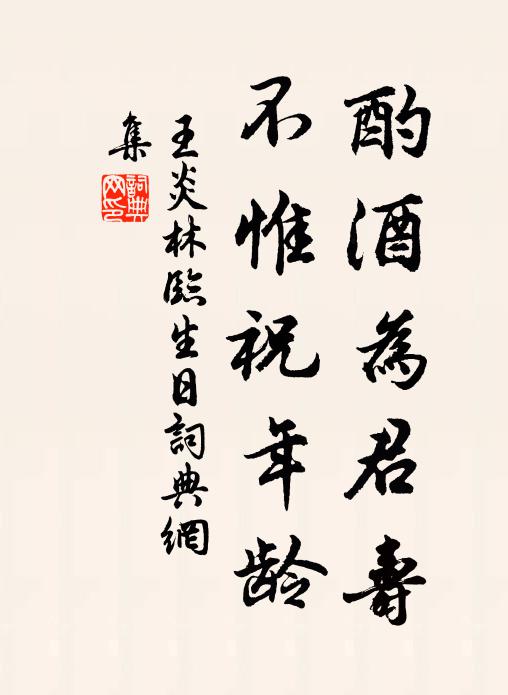 酌酒為君壽
不惟祝年龄
王炎林臨生日詞典網
集
詞典
网印